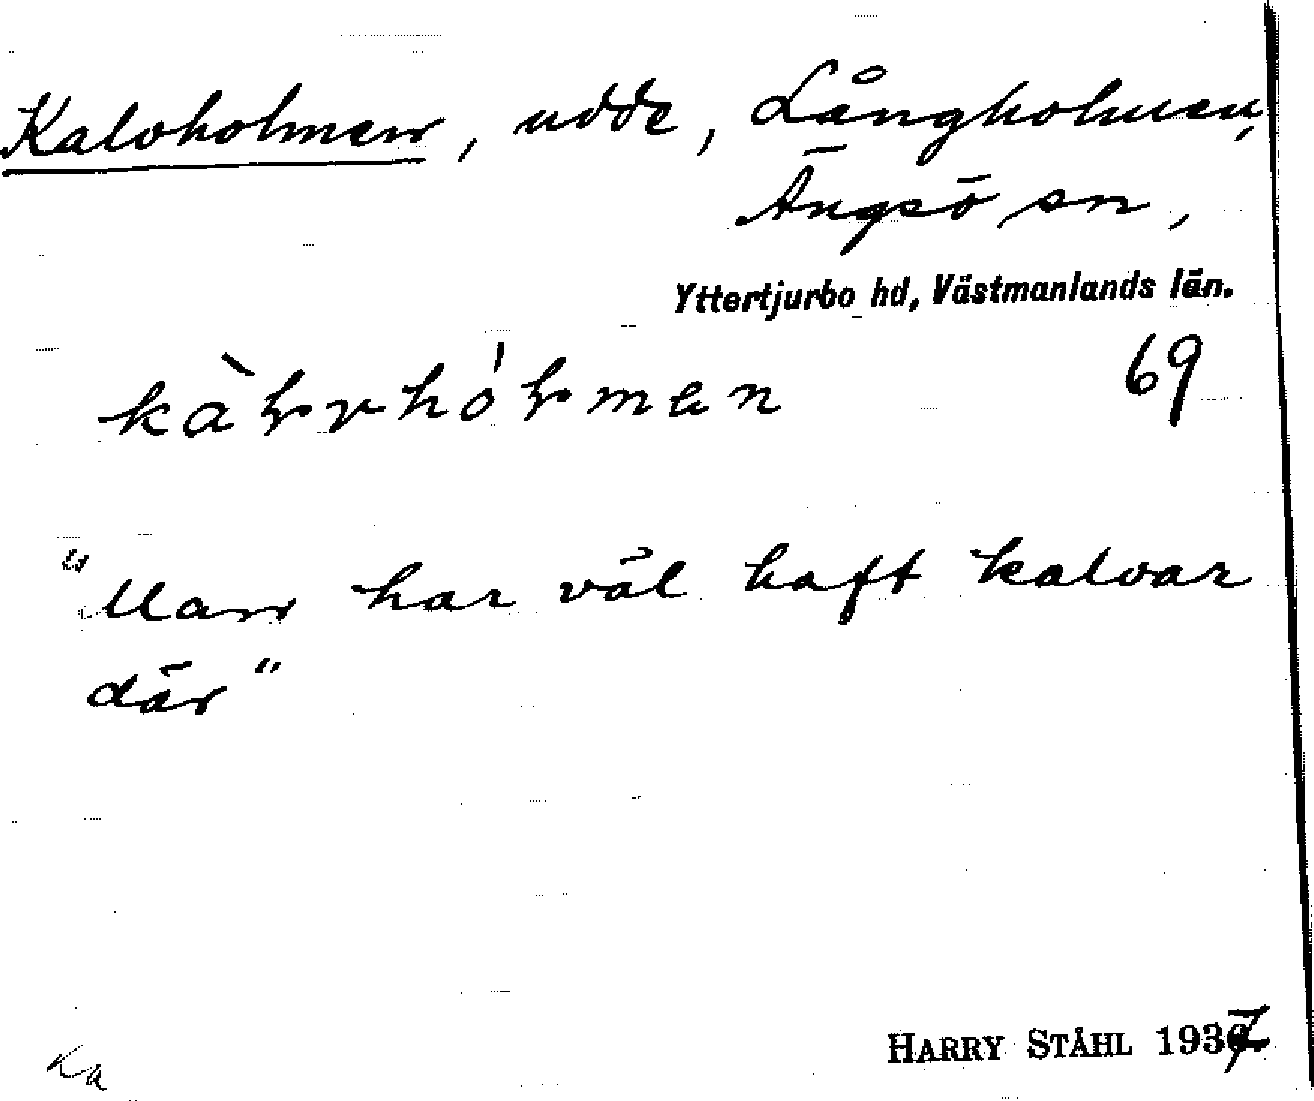 Kalvholmen, udde, Långholmen,
Ängsö sn,
Yttertjurbo hd, Västmanlands län.
69
"Man har väl haft kalvar
där"
HARRY STÅHL 1937
Ka